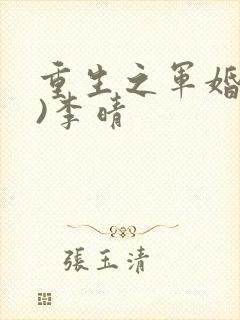 重生之军婚
)李晴
張玉清